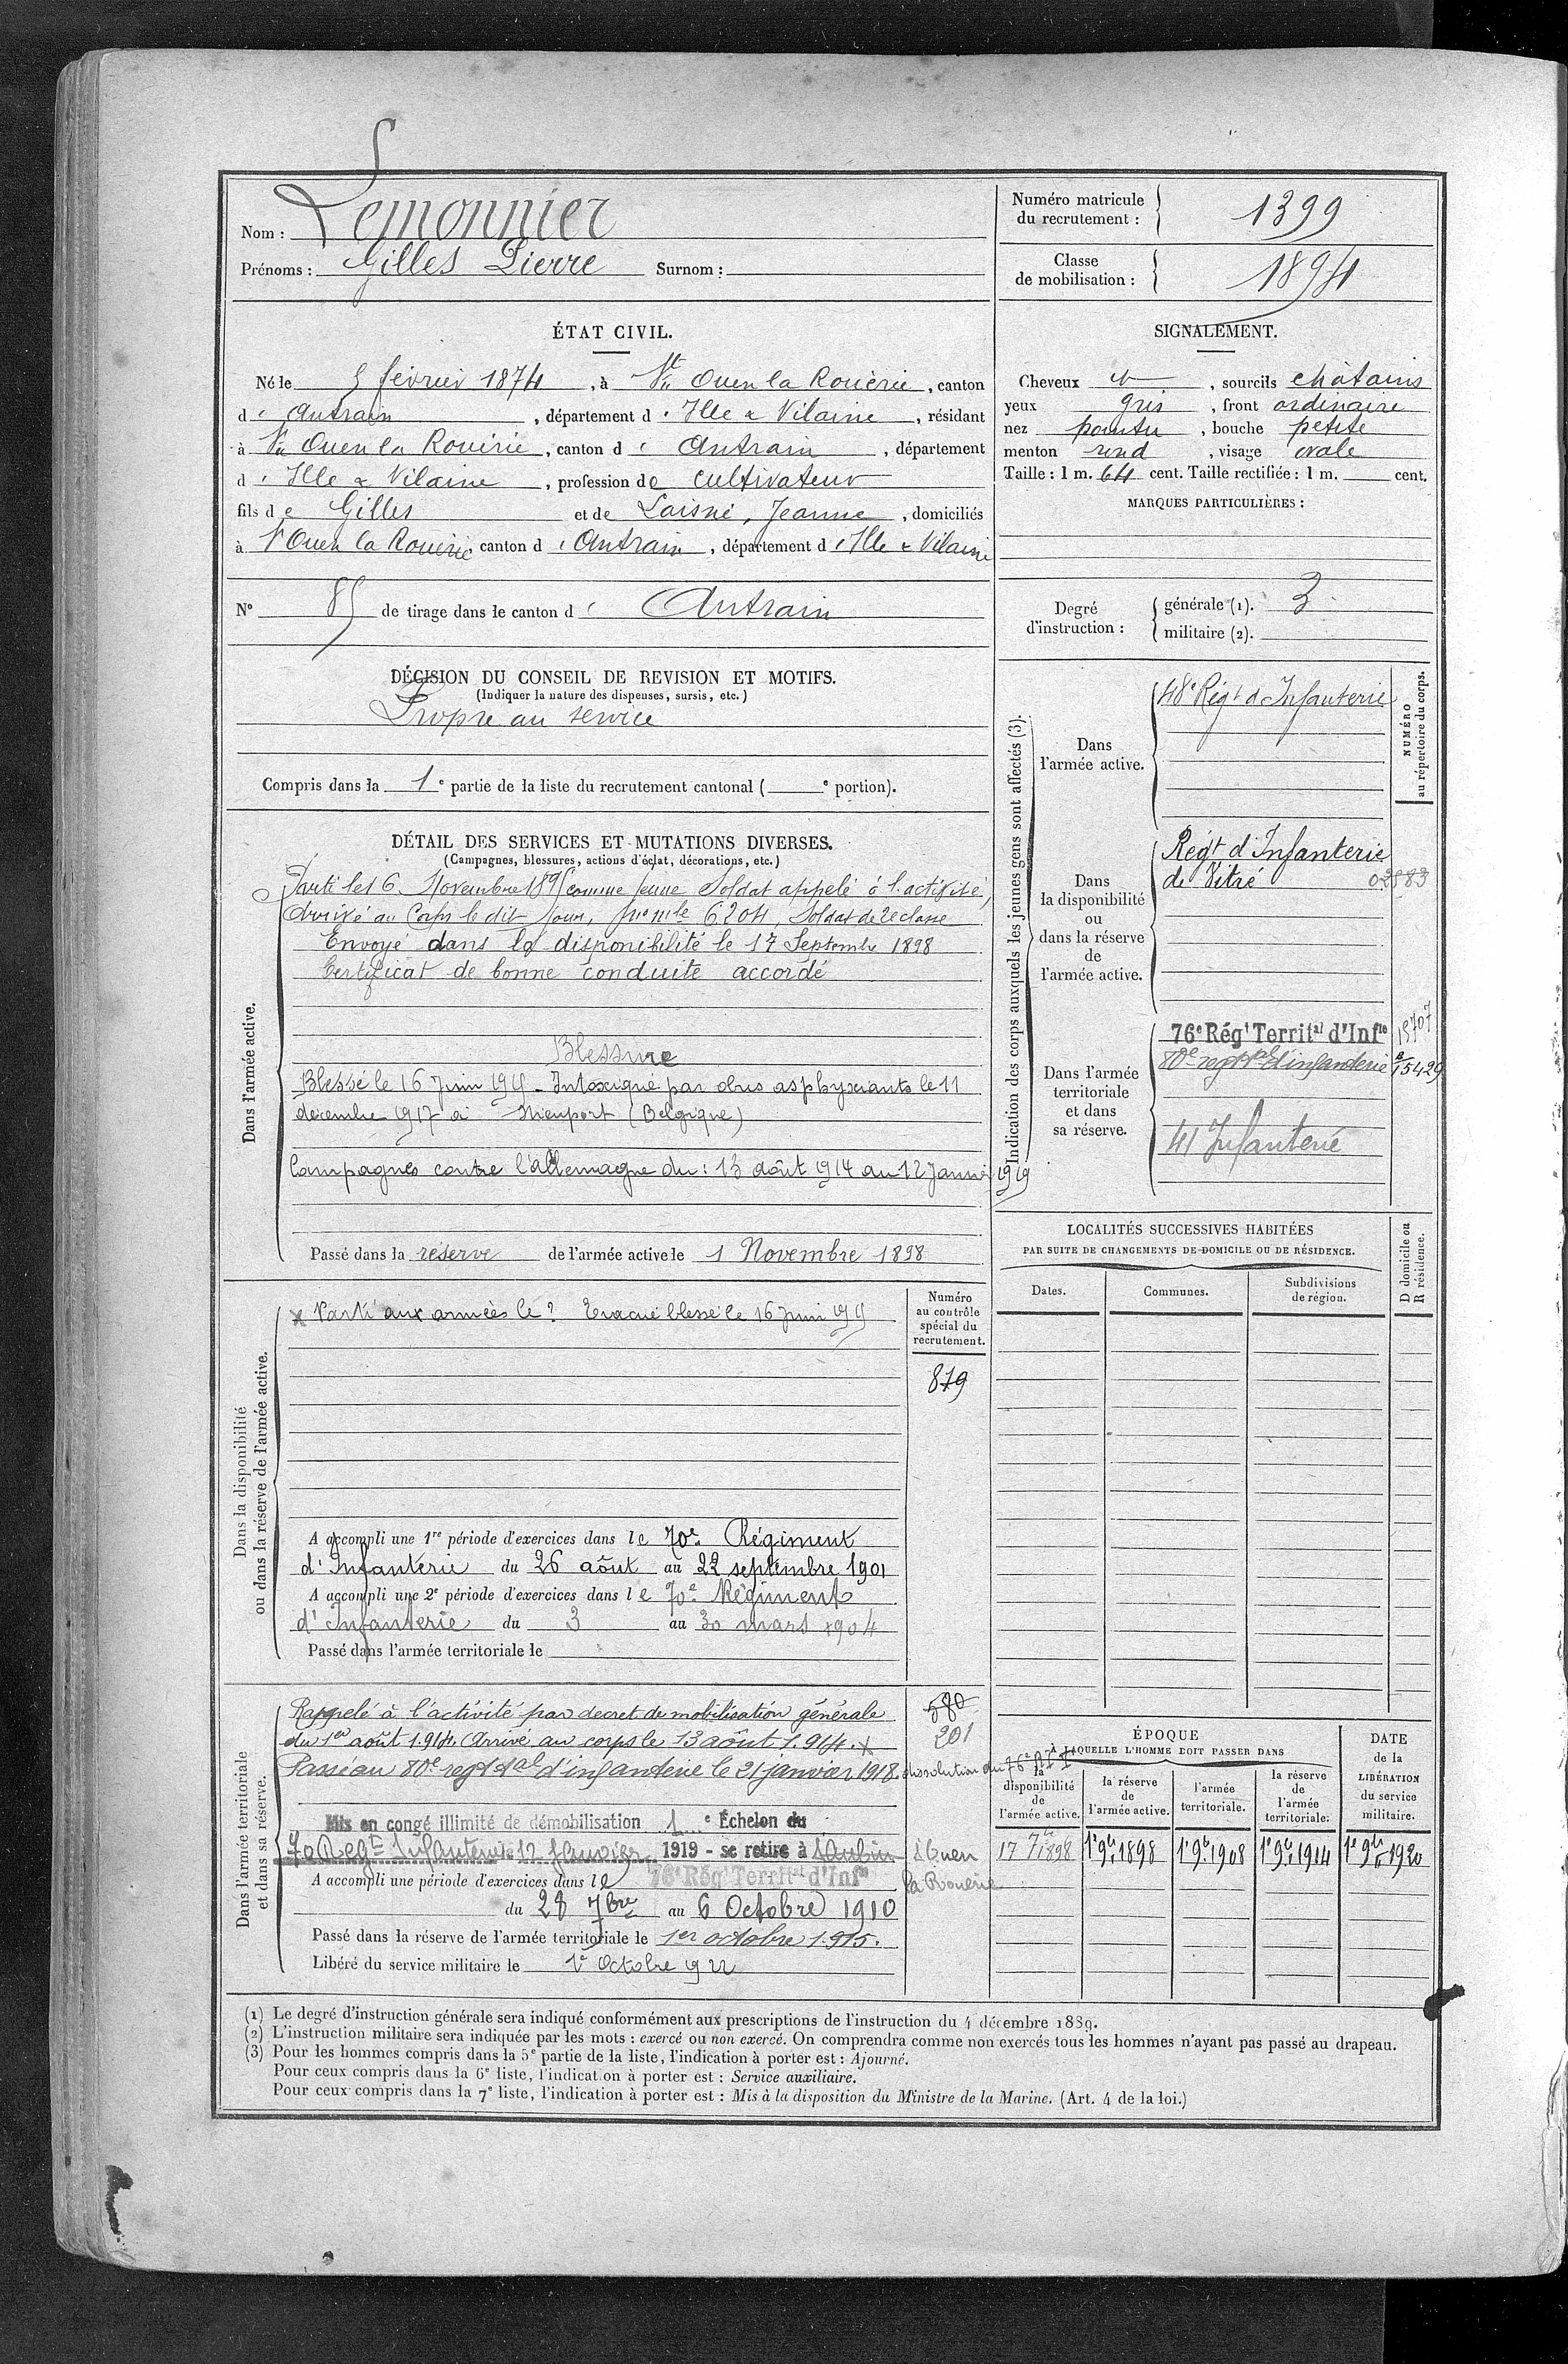 Nom : Lemonnier
Prénoms : Gilles Pierre Surnom :
Numéro matricule du recrutement : 1399
Classe de mobilisation : 1894
ÉTAT CIVIL.
Né le 5 février 1874, à St Ouen la Rouërie, canton
d' Antrain, département d' Ille & Vilaine, résidant
à St Ouen la Rouërie, canton d' Antrain, département
d' Ille & Vilaine, profession de cultivateur
fils de Gilles et de Laisné, Jeanne, domiciliés
à St Ouen la Rouërie, canton d' Antrain, département d' Ille & Vilaine
N° 85 de tirage dans le canton d' Antrain
SIGNALEMENT.
Cheveux et, sourcils châtains
yeux gris, front ordinaire
nez pointu, bouche petite
menton rond, visage ovale
Taille : 1 m. 64 cent. Taille rectifiée : 1 m. cent.
MARQUES PARTICULIÈRES :
Degré d'instruction : générale (1). 3
militaire (2).
DÉCISION DU CONSEIL DE REVISION ET MOTIFS.
(Indiquer la nature des dispenses, sursis, etc.)
Propre au service
Compris dans la 1e partie de la liste du recrutement cantonal ( e portion).
DÉTAIL DES SERVICES ET MUTATIONS DIVERSES.
(Campagnes, blessures, actions d'éclat, décorations, etc.)
Dans l'armée active.
Parti le 16 Novembre 1895 comme jeune Soldat appelé à l'activité,
Arrivé au Corps le dit jour, no mle 6204, Soldat de 2e classe
Envoyé dans la disponibilité le 17 Septembre 1898
Certificat de bonne conduite accordé
Blessure
Blessé le 16 Juin 1915 - Intoxiqué par obus asphyxiants le 11
décembre 1917 à Nieuport (Belgique)
Campagnes contre l'Allemagne du : 13 août 1914 au 12 Janvier 1919
Passé dans la réserve de l'armée active le 1 Novembre 1898
Indication des corps auxquels les jeunes gens sont affectés (3).
NUMÉRO au répertoire du corps.
Dans l'armée active.
48e Régt d'Infanterie
Dans la disponibilité ou dans la réserve de l'armée active.
Régt d'Infanterie
de Vitré 02583
Dans l'armée territoriale et dans sa réserve.
76e Régt Territal d'Infie 15707
80e regt tal d'infanterie 15429
41 Infanterie
LOCALITÉS SUCCESSIVES HABITÉES
PAR SUITE DE CHANGEMENTS DE DOMICILE OU DE RÉSIDENCE.
Dates. Communes. Subdivisions de région.
D domicile ou R résidence.
Dans la disponibilité ou dans la réserve de l'armée active.
Numéro au contrôle spécial du recrutement.
x Parti aux armées le ? Evacué blessé le 16 juin 1915
879
A accompli une 1re période d'exercices dans le 70e Régiment
d'Infanterie du 26 août au 22 septembre 1901
A accompli une 2e période d'exercices dans le 70e Régiment
d'Infanterie du 3 au 30 mars 1904
Passé dans l'armée territoriale le
Dans l'armée territoriale et dans sa réserve.
Rappelé à l'activité par décret de mobilisation générale
580
du 1er août 1914. Arrivé au corps le 13 août 1914. x
201
Passé au 80e regt tal d'infanterie le 21 janvier 1918. dissolution du 76e RIT
Mis en congé illimité de démobilisation 1e Échelon du
70 Regt Infanterie 12 Janvier 1919 - se retire à St Aubin St Ouen
la Rouërie
A accompli une période d'exercices dans le 76e Régt Territal d'Infie
du 28 7bre au 6 Octobre 1910
Passé dans la réserve de l'armée territoriale le 1er octobre 1915.
Libéré du service militaire le 1er Octobre 1922
ÉPOQUE
À LAQUELLE L'HOMME DOIT PASSER DANS
la disponibilité de l'armée active. la réserve de l'armée active. l'armée territoriale. la réserve de l'armée territoriale.
DATE de la LIBÉRATION du service militaire.
17 7bre 1898 1er 9bre 1898 1er 9bre 1908 1er 9bre 1914 1er 9bre 1920
(1) Le degré d'instruction générale sera indiqué conformément aux prescriptions de l'instruction du 4 décembre 1889.
(2) L'instruction militaire sera indiquée par les mots : exercé ou non exercé. On comprendra comme non exercés tous les hommes n'ayant pas passé au drapeau.
(3) Pour les hommes compris dans la 5e partie de la liste, l'indication à porter est : Ajourné.
Pour ceux compris dans la 6e liste, l'indication à porter est : Service auxiliaire.
Pour ceux compris dans la 7e liste, l'indication à porter est : Mis à la disposition du Ministre de la Marine. (Art. 4 de la loi.)